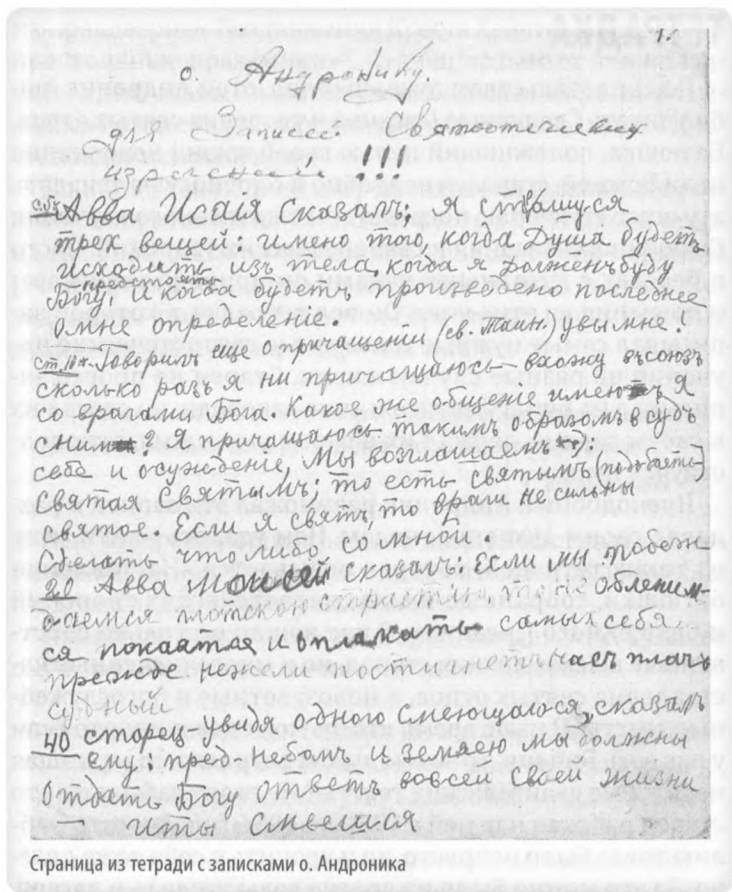 1.
о. Андронику.
для Этисее Святоотечески
изречения !!!
Авва Исаія сказалъ: я страшуся
трех вещей: имено того, когда Душа будетъ
исходить изъ тела, когда я долженъ буду
предстоять
Богу, и когда будетъ произведено последнее
о мне определение.
ст. 10 н. Говорилъ еще о причащении (св. Таин.) увы мне!
сколько разъ я ни приглашаюсь вхожу въ союзъ
со врагами Бога. Какое же общение имею я
с ним? Я причащаюсь такимъ образомъ в судъ
себе и осуждение, Мы возглашаемъ:
Святая Святымъ; то есть святымъ подобаетъ
святое. Если я святъ, то враги не сильны
сделать что либо со мной.
20 Авва Моисей сказал: Если мы побеж-
даемся плотскою страстию, то не обленим-
ся покаятся и оплакать самых себя
прежде нежели постигнетъ насъ плачъ
Судный
40 старец увидя одного смеющагося, сказалъ
ему: пред Небомъ и землею мы должни
Отдать Богу Ответъ во всей своей жизни
и ты смеешися
Страница из тетради с записками о. Андроника